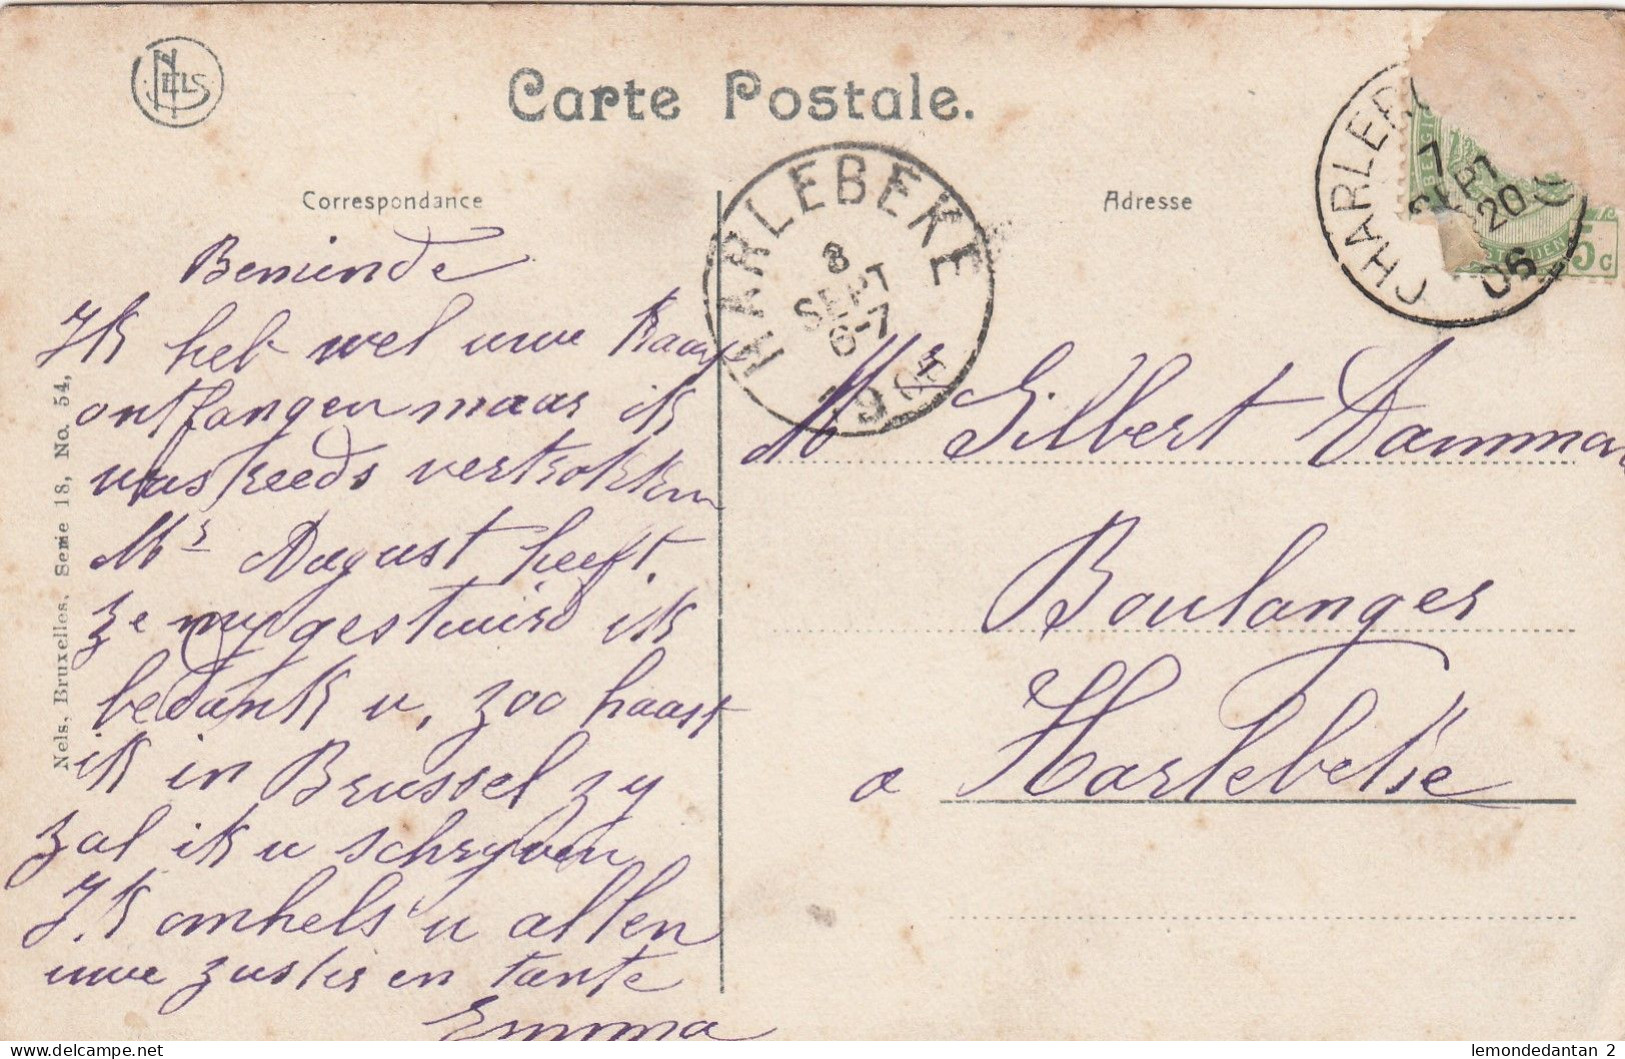 NELS
Carte Postale.
Correspondance
Adresse
Beminde
Ik heb wel uwe Kaart
ontfangen maar ik
was reeds vertrokken
Mr August heeft
ze my gestuurd ik
bedank u, zoo haast
ik in Brussel zy
zal ik u schryven
Ik omhels u allen
uwe zuster en tante
Emma
Nels, Bruxelles, Serie 18, No. 54,
HARLEBEKE
8
SEPT
6-7
CHARLER
7
SEPT
20
06
5c
Mr Gilbert Damman
Boulanger
a Harlebeke
lemondedantan_2